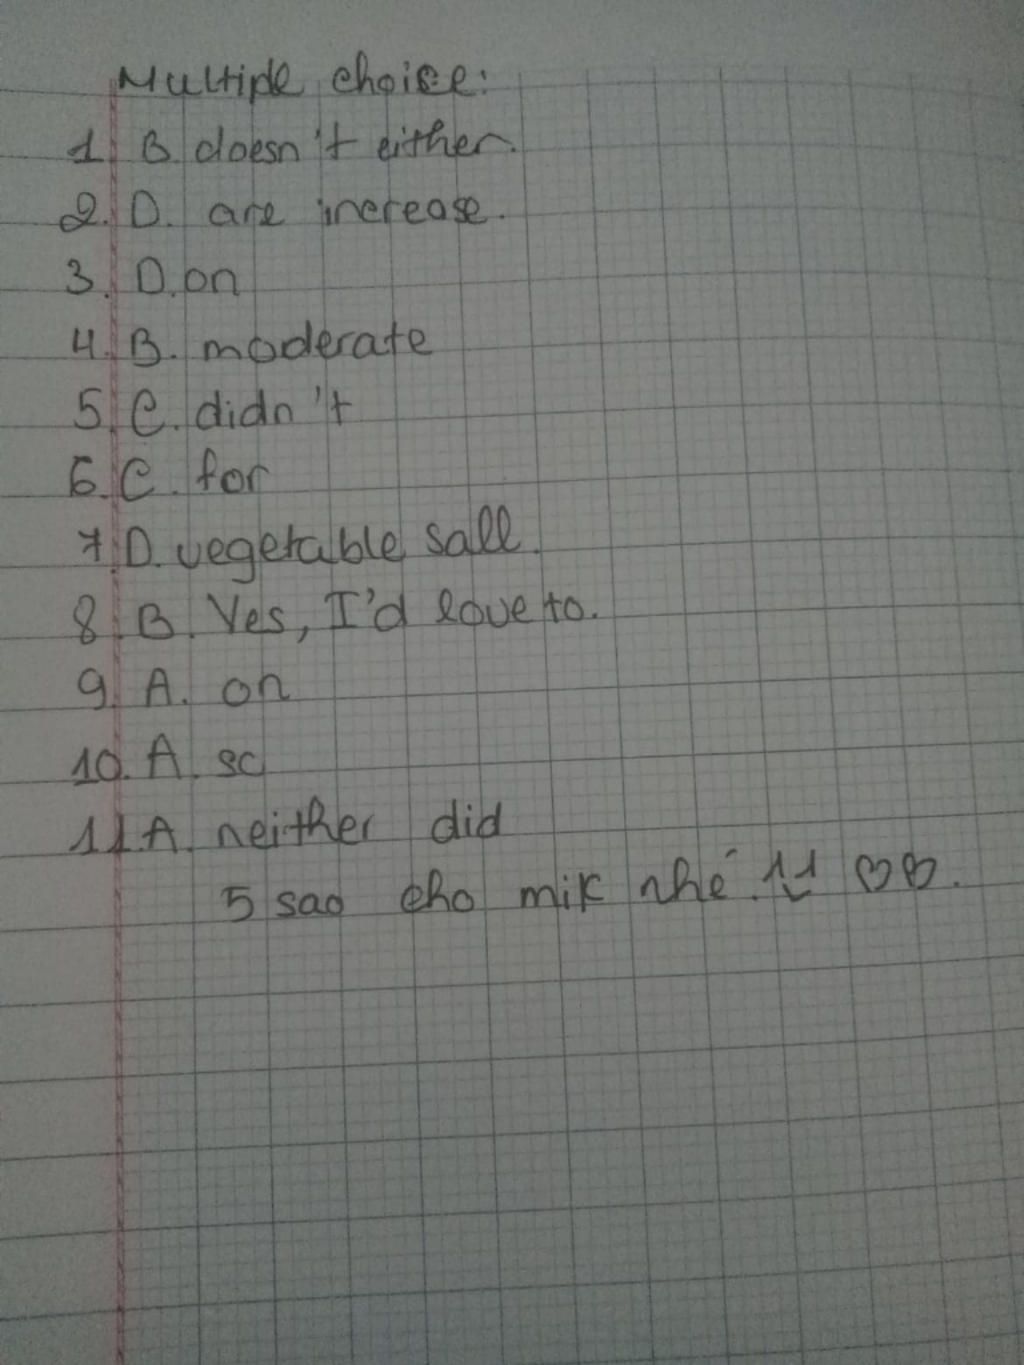 Multiple choice:
1. B. doesn't either.
2. D. are increase.
3. D. on
4. B. moderate
5. C. didn't
6. C. for
7. D. vegetable sall.
8. B. Yes, I'd love to.
9. A. on
10. A. so
11. A. neither did
5 sao cho mik nhé. ♡♡.